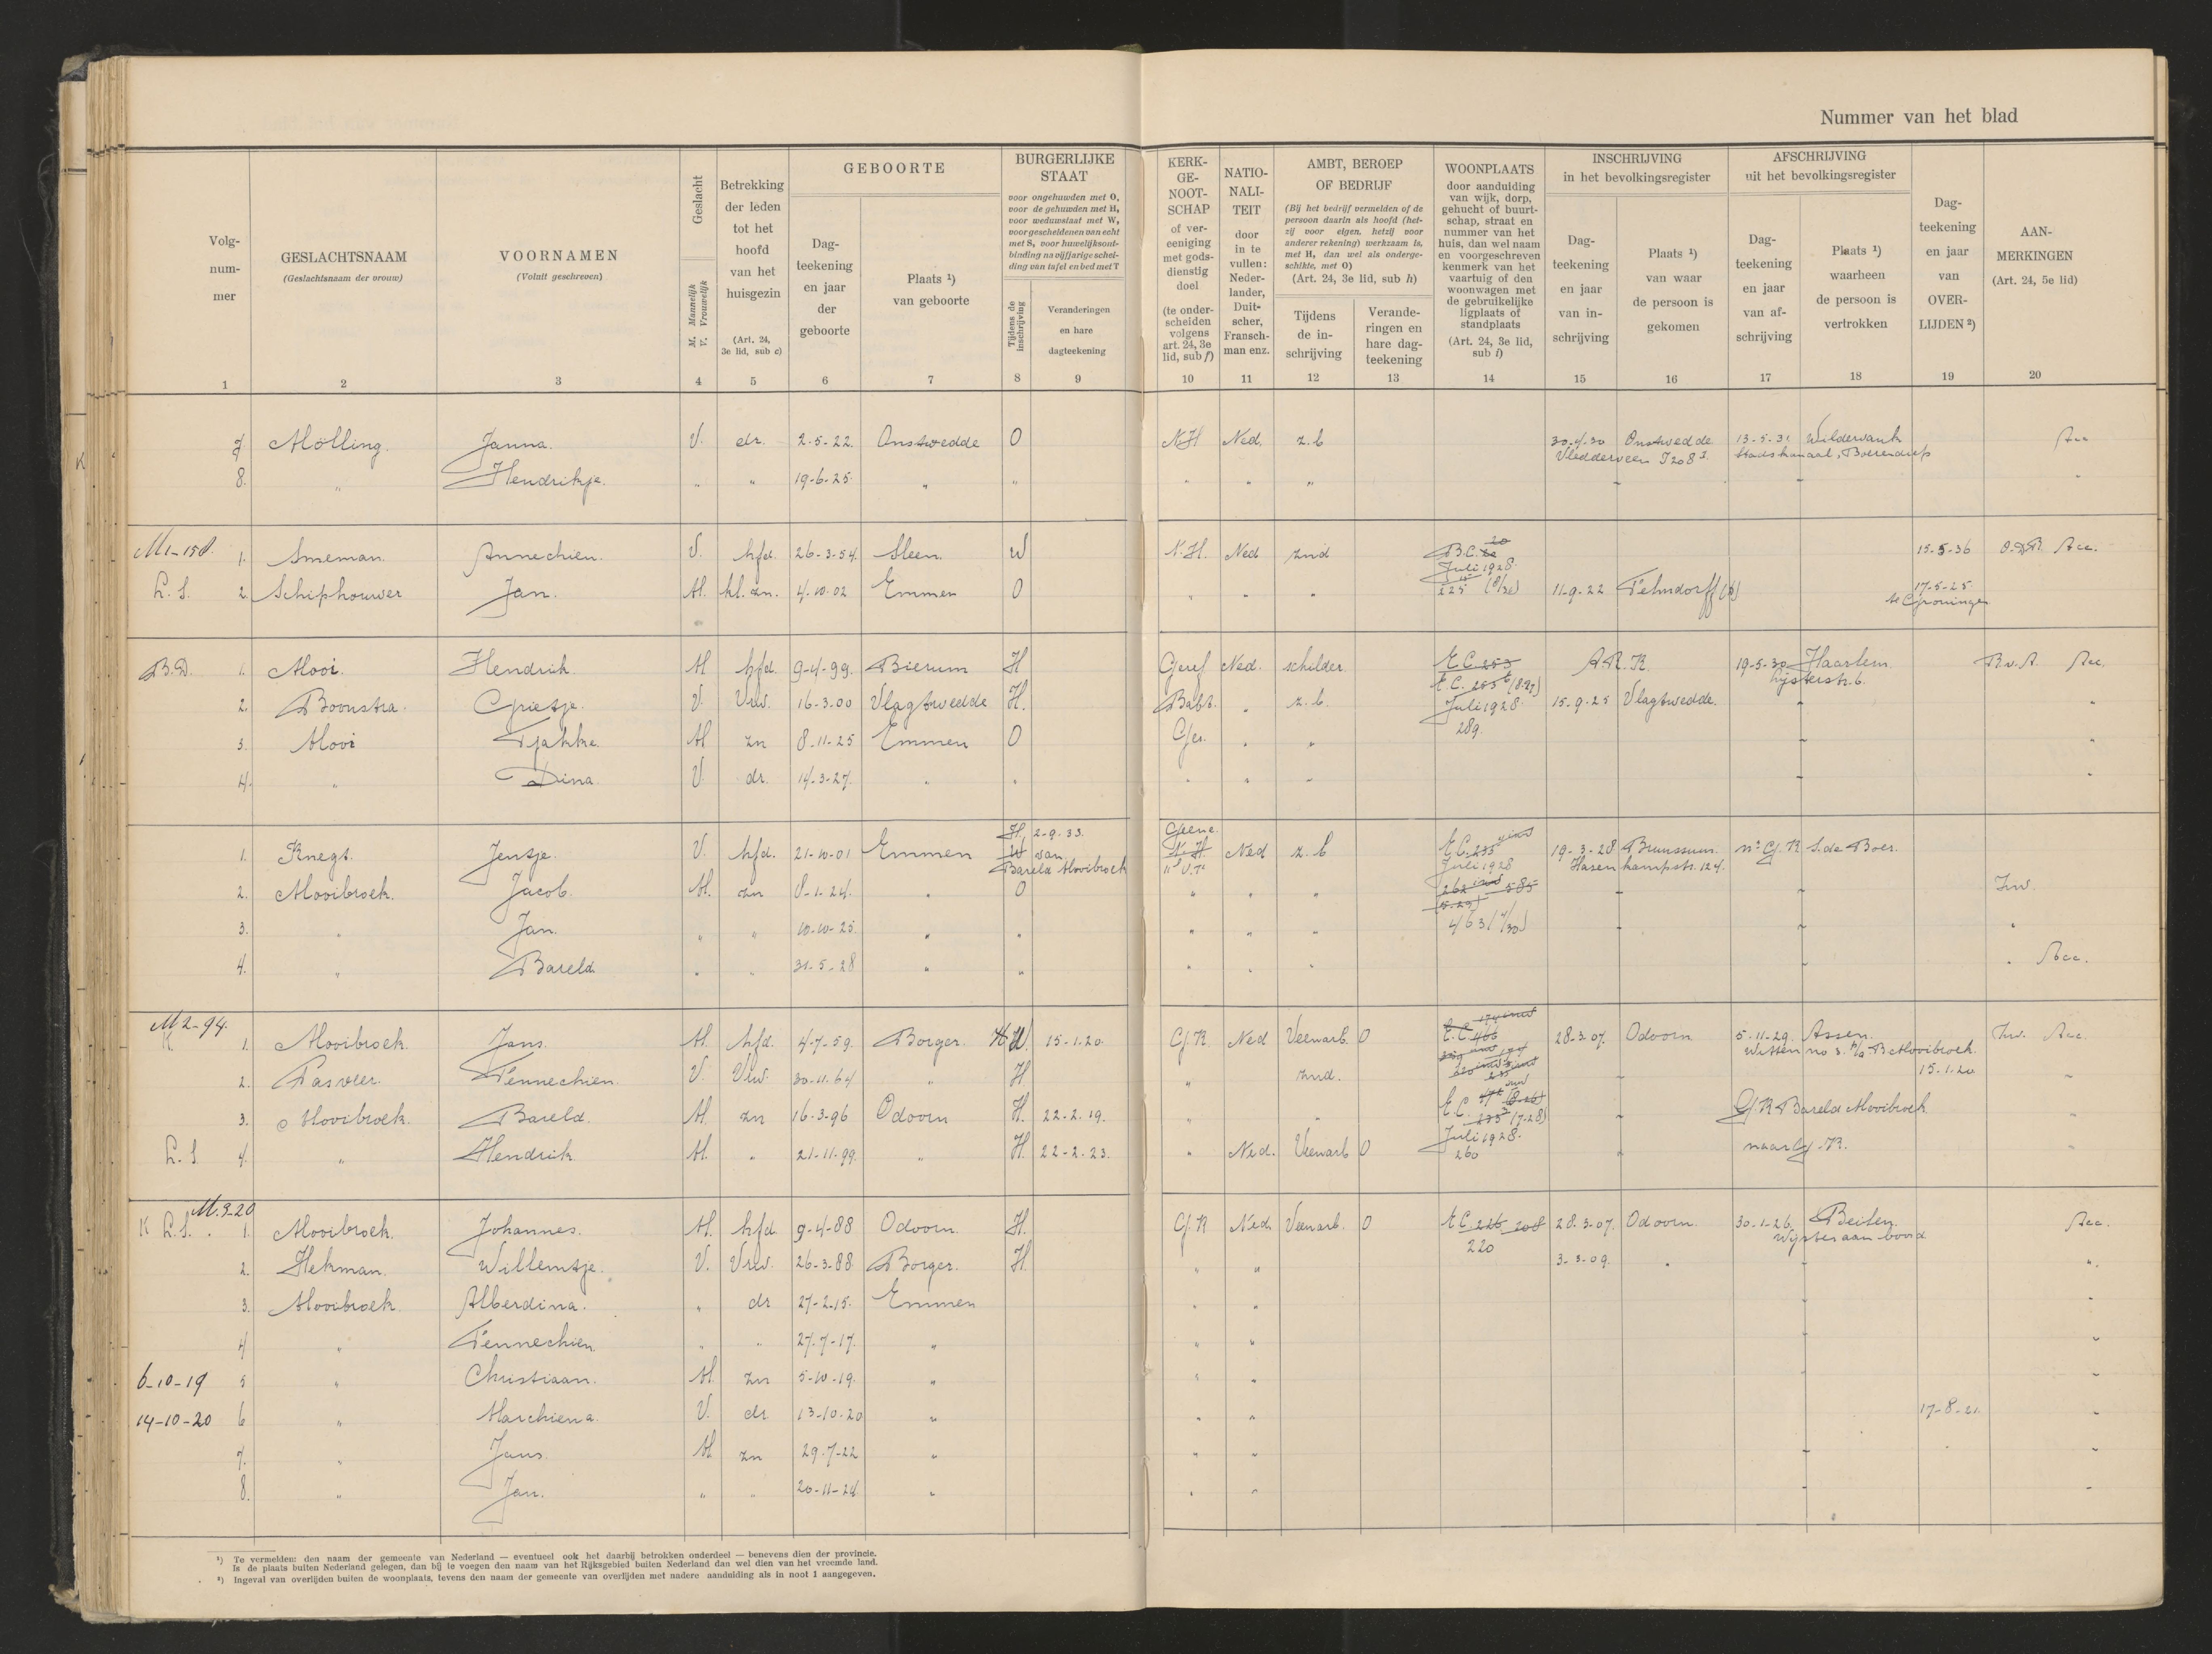 Nummer van het blad
Volg-
num-
mer
1
GESLACHTSNAAM
(Geslachtsnaam der vrouw)
2
VOORNAMEN
(Voluit geschreven)
3
Geslacht
M. Mannelijk
V. Vrouwelijk
4
Betrekking
der leden
tot het
hoofd
van het
huisgezin
(Art. 24,
3e lid, sub c)
5
GEBOORTE
Dag-
teekening
en jaar
der
geboorte
6
Plaats ¹)
van geboorte
7
BURGERLIJKE
STAAT
voor ongehuwden met O,
voor de gehuwden met H,
voor weduwstaat met W,
voor gescheidenen van echt
met S, voor huwelijksont-
binding na vijfjarige schei-
ding van tafel en bed met T
Tijdens de
inschrijving
8
Veranderingen
en hare
dagteekening
9
KERK-
GE-
NOOT-
SCHAP
of ver-
eeniging
met gods-
dienstig
doel
(te onder-
scheiden
volgens
art. 24, 3e
lid, sub f)
10
NATIO-
NALI-
TEIT
door
in te
vullen:
Neder-
lander,
Duit-
scher,
Fransch-
man enz.
11
AMBT, BEROEP
OF BEDRIJF
(Bij het bedrijf vermelden of de
persoon daarin als hoofd (het-
zij voor eigen, hetzij voor
anderer rekening) werkzaam is,
met H, dan wel als onderge-
schikte, met O)
(Art. 24, 3e lid, sub h)
Tijdens
de in-
schrijving
12
Verande-
ringen en
hare dag-
teekening
13
WOONPLAATS
door aanduiding
van wijk, dorp,
gehucht of buurt-
schap, straat en
nummer van het
huis, dan wel naam
en voorgeschreven
kenmerk van het
vaartuig of den
woonwagen met
de gebruikelijke
ligplaats of
standplaats
(Art. 24, 3e lid,
sub i)
14
INSCHRIJVING
in het bevolkingsregister
Dag-
teekening
en jaar
van in-
schrijving
15
Plaats ¹)
van waar
de persoon is
gekomen
16
AFSCHRIJVING
uit het bevolkingsregister
Dag-
teekening
en jaar
van af-
schrijving
17
Plaats ¹)
waarheen
de persoon is
vertrokken
18
Dag-
teekening
en jaar
van
OVER-
LIJDEN ²)
19
AAN-
MERKINGEN
(Art. 24, 5e lid)
20
7 Mölling. Janna. V. dr. 2-5-22. Onstwedde O N.H Ned. z.b 30-4-30 Onstwedde 13-5-31 Wildervank Acc
Vledderveen J 208 Stadskanaal, Boerendiep
8. " Hendrikje. " " 19-6-25. " " " " "
M1-158. 1. Smeman. Annechien. V. hfd. 26-3-54. Sleen. W N.H. Ned znd B.C. 20 15-5-36 Acc.
Juli 1928
L.S. 2. Schiphouwer Jan. M. kl.zn. 4-10-02 Emmen O " " " 225 11-9-22 Fehndorff 17-5-25
te Groningen
B.D. 1. Mooi. Hendrik. M hfd. 9-4-99. Bierum H Geref Ned. schilder E.C. 253 A.R.K. 19-5-30 Haarlem R.v.A. Acc.
E.C. 253 (8.27) Lijsterstr. 6.
2. Boonstra. Grietje. V. Vrw. 16-3-00 Vlagtwedde H. Babt. " z.b. Juli 1928. 15-9-25 Vlagtwedde. "
3. Mooi Tjakke. M zn 8-11-25 Emmen O Ger. " " 289. "
4. " Dina. V. dr. 14-3-27. " " " " "
H. 2-9-33. Geene
1. Knegt. Jentje. V. hfd. 21-10-01 Emmen W van N.H. Ned z.b E.C. 235 19-3-28 Brunssum. G.K S. de Boer.
Bareld Mooibroek Juli 1928 Hasenkampstr. 124.
2. Mooibroek. Jacob. M. zn 8-1-24. " O " " " 262 585 Inw.
3. " Jan. " " 10-10-25. " " " " " 463 (4/30) "
4. " Bareld " " 31-5-28 " " " " " " Acc.
M2-94.
K 1. Mooibroek. Jans. M. hfd. 4-7-59. Borger. H W. 15-1-20. G.K. Ned Veenarb. O E.C. 466 28-3-07. Odoorn 5-11-29. Assen. Inw. Acc.
Witten no 3. b/d B. Mooibroek.
2. Pasveer. Fennechien. V. Vrw. 30-11-64 " H. " znd. 15-1-20
3. Mooibroek. Bareld. M. zn 16-3-96 Odoorn H. 22-2-19. " " E.C. 235 (7-28) G.K Bareld Mooibroek
L.S 4. " Hendrik M. " 21-11-99. " H. 22-2-23. " Ned. Veenarb O Juli 1928. naar G.K.
260
M.3-20
K L.S. 1. Mooibroek. Johannes. M. hfd. 9-4-88 Odoorn. H. G.K Ned. Veenarb. O E.C. 226 208 28-3-07. Odoorn. 30-1-26. Beilen. Acc.
220 Wijster aan boord
2. Hekman. Willemtje. V. Vrw. 26-3-88. Borger. H. " " 3-3-09. " "
3. Mooibroek. Alberdina. " dr 27-2-15. Emmen " " "
4 " Fennechien. " " 27-7-17. " " " "
6-10-19 5 " Christiaan. M. zn 5-10-19. " " " "
14-10-20 6 " Marchiena. V. dr. 13-10-20 " " " 17-8-21. "
7. " Jans. M zn 29-7-22 " " " "
8. " Jan. " " 20-11-24 " " " "
¹) Te vermelden: den naam der gemeente van Nederland — eventueel ook het daarbij betrokken onderdeel — benevens dien der provincie.
Is de plaats buiten Nederland gelegen, dan bij te voegen den naam van het Rijksgebied buiten Nederland dan wel dien van het vreemde land.
²) Ingeval van overlijden buiten de woonplaats, tevens den naam der gemeente van overlijden met nadere aanduiding als in noot 1 aangegeven.